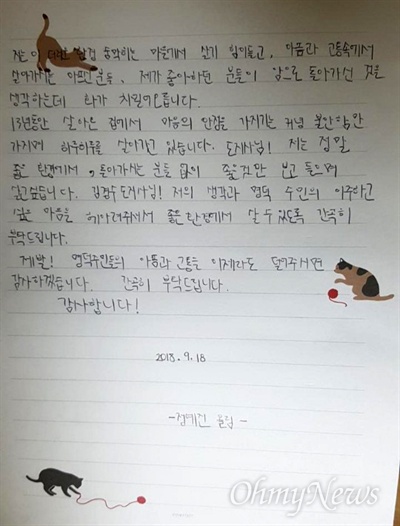 저는 이 더럽고 숨막히는 마을에서 살기 힘이들고, 아픔과 고통속에서
살아가시는 아픈분들, 제가 좋아하던 분들이 암으로 돌아가신 것을
생각하는데 화가 치밀어오릅니다.
13년동안 살아온 집에서 마음의 안정을 가지기는 커녕 불안함만
가지며 하루하루를 살아가고 있습니다. 도지사님! 저는 정말
좋은 환경에서, 돌아가시는 분들 없이 좋지만 보고 들으며
살고싶습니다. 김경수도지사님! 저의 생각과 영덕 주민의 이주하고
싶은 마음을 헤아려주셔서 좋은 환경에서 살 수 있도록 간곡히
부탁드립니다.
제발! 영덕주민들의 아픔과 고통을 이제라도 덜어주시면
감사하겠습니다. 간곡히 부탁드립니다.
감사합니다!
2018. 9. 18
- 올림 -
OhmyNews